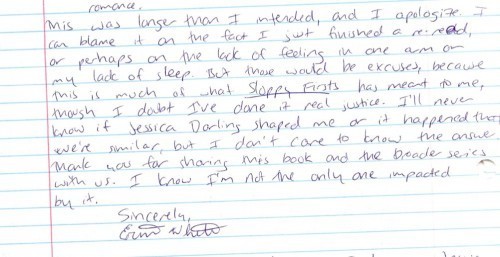 romance.
This was longer than I intended, and I apologize. I
can blame it on the fact I just finished a re-read,
or perhaps on the lack of feeling in one arm or
my lack of sleep. But those would be excuses, because
this is much of what Sloppy Firsts has meant to me,
though I doubt I've done it real justice. I'll never
know if Jessica Darling shaped me or it happened that
we're similar, but I don't care to know the answer.
Thank you for sharing this book and the broader series
with us. I know I'm not the only one impacted
by it.
Sincerely,